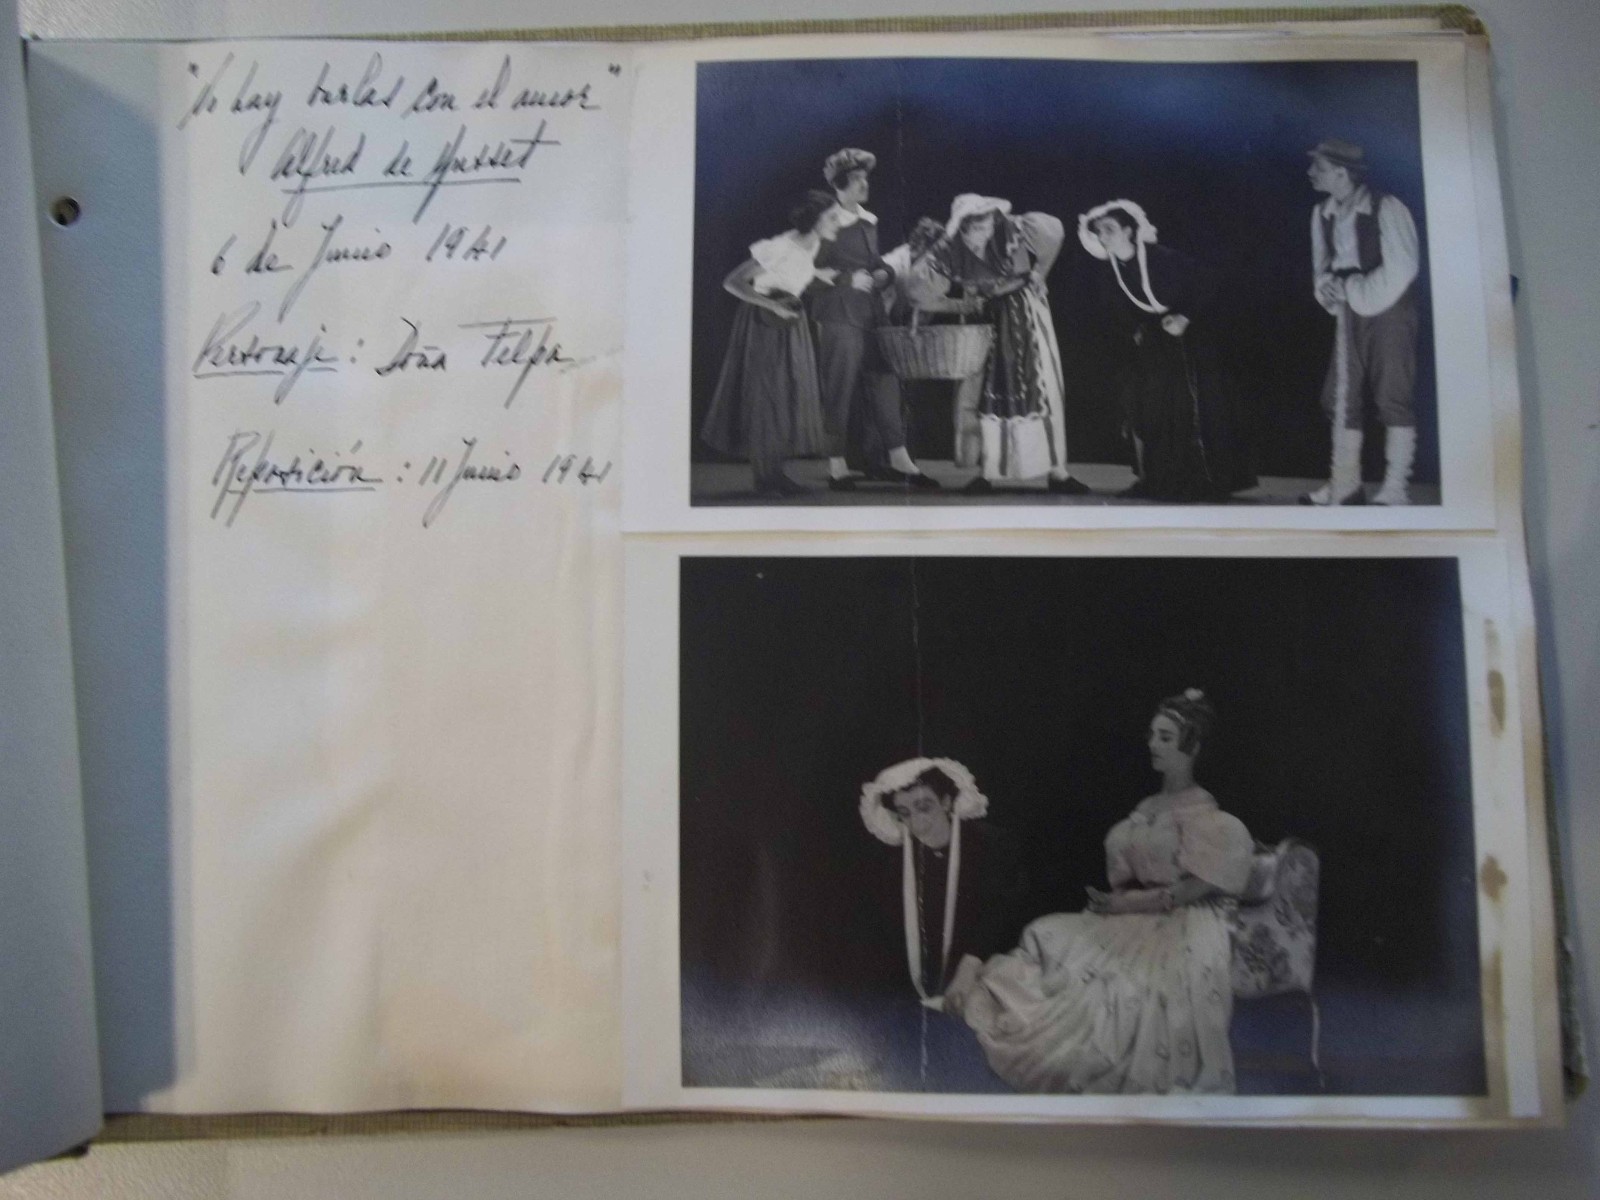 "No hay burlas con el amor"
Alfred de Musset
6 de Junio 1941
Personaje: Doña Felpa
Reposición: 11 Junio 1941